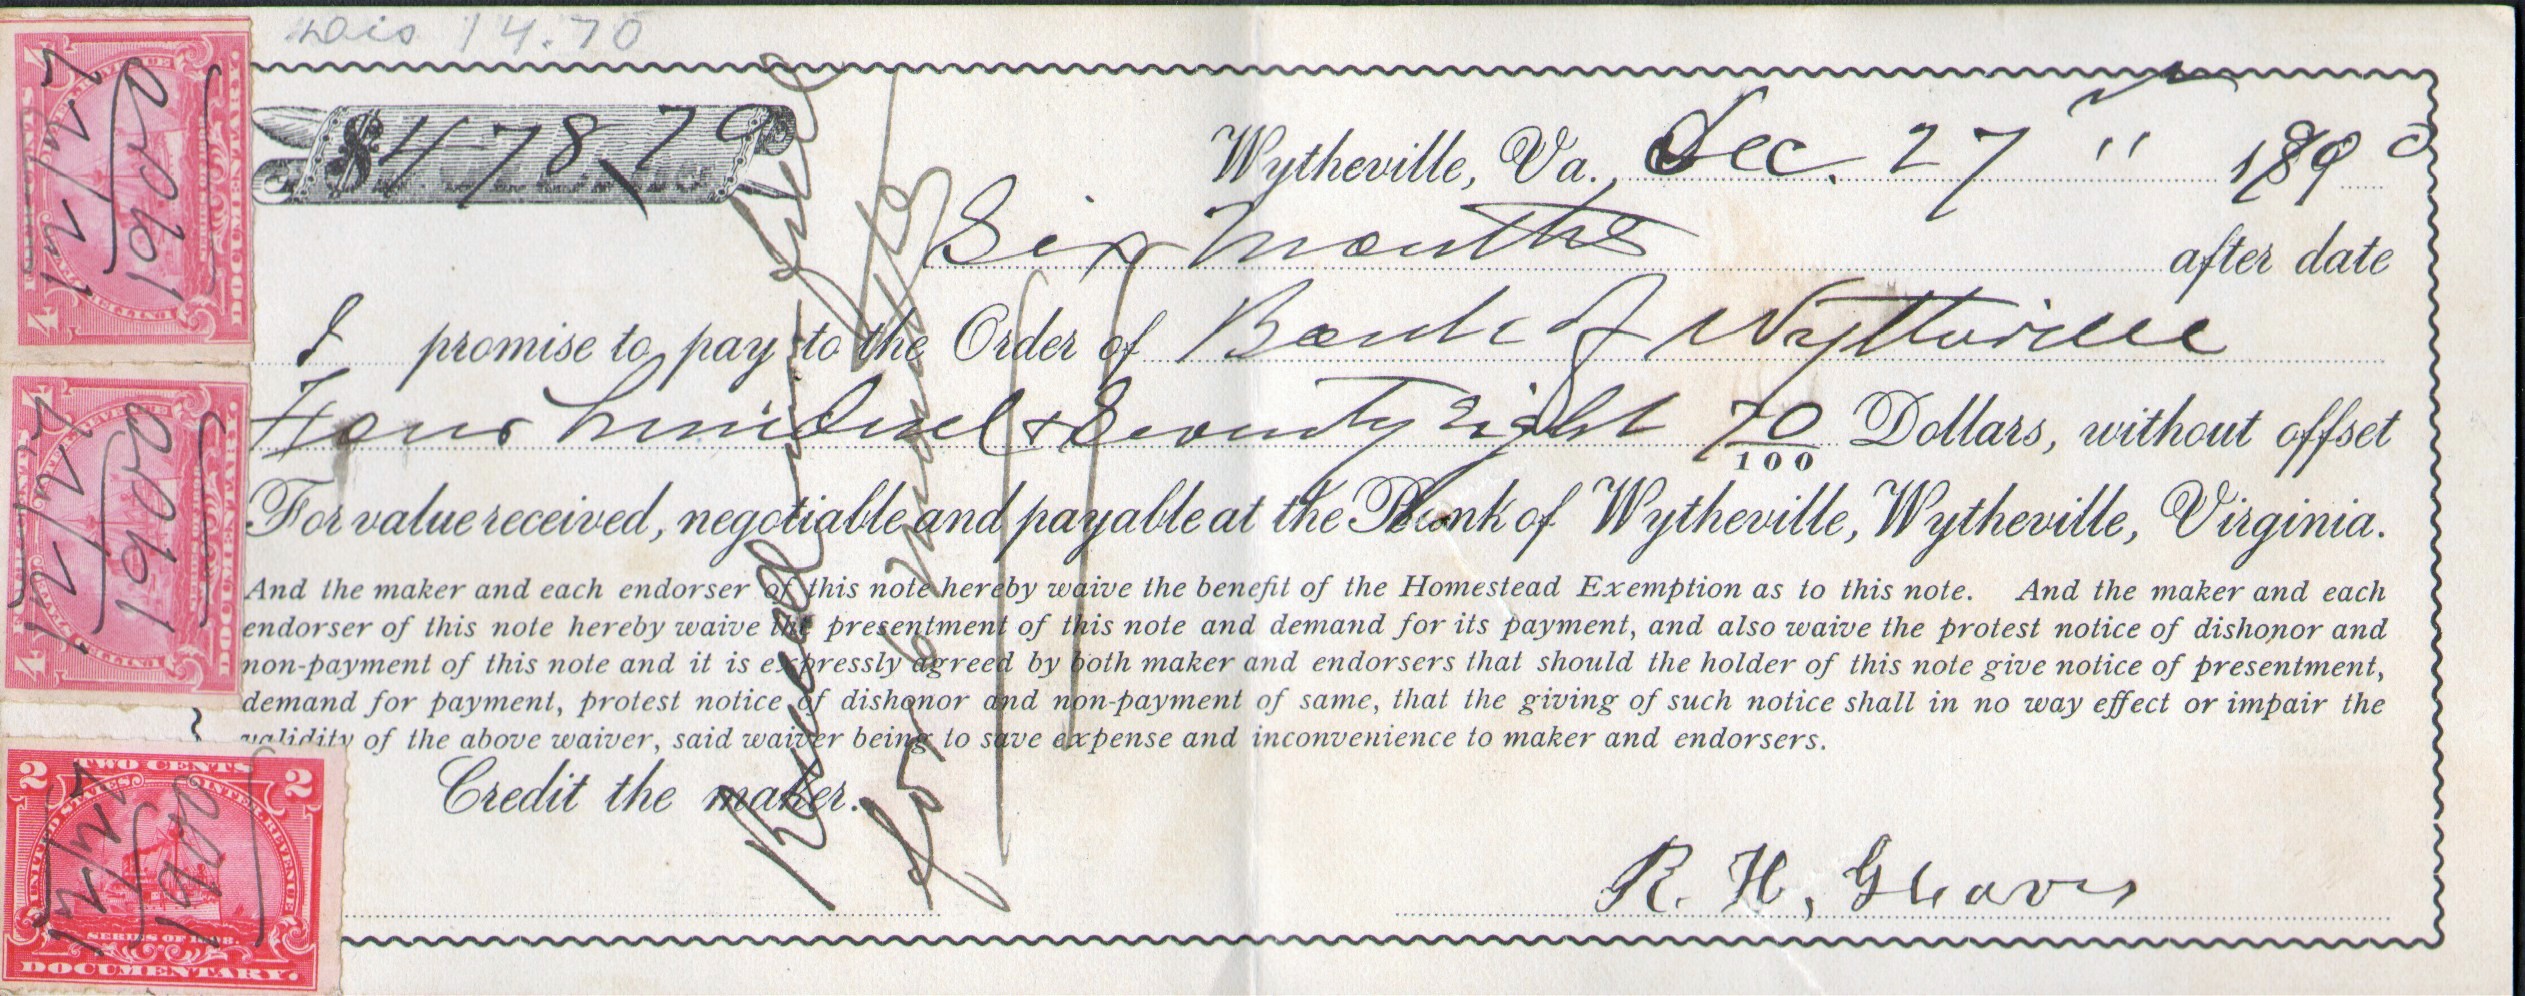 Dis 14.70
$478.70
Wytheville, Va., Dec. 27 " 1890
Six Months after date
I promise to pay to the Order of Bank of Wytheville
Four hundred & Seventy Eight 70/100 Dollars, without offset
For value received, negotiable and payable at the Bank of Wytheville, Wytheville, Virginia.
And the maker and each endorser of this note hereby waive the benefit of the Homestead Exemption as to this note. And the maker and each
endorser of this note hereby waive the presentment of this note and demand for its payment, and also waive the protest notice of dishonor and
non-payment of this note and it is expressly agreed by both maker and endorsers that should the holder of this note give notice of presentment,
demand for payment, protest notice of dishonor and non-payment of same, that the giving of such notice shall in no way effect or impair the
validity of the above waiver, said waiver being to save expense and inconvenience to maker and endorsers.
Credit the maker.
R. H. Gleaves
Renewed in full
for 6 months
4
DOCUMENTARY.
4
4
DOCUMENTARY.
4
2 TWO CENTS 2
UNITED STATES INTER. REVENUE
SERIES OF 1898.
DOCUMENTARY.